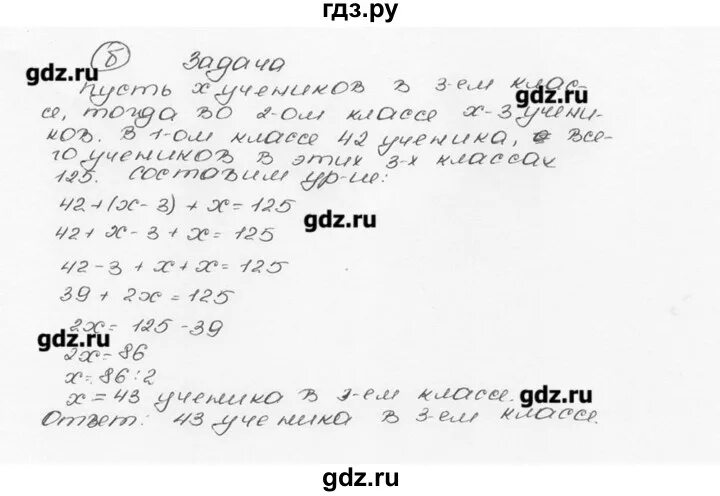 гдз.ру
б Задача
gdz.ru
Пусть х учеников в 3-ем клас-
gdz.ru
се, тогда во 2-ом классе х-3 учени-
ков. В 1-ом классе 42 ученика, а все-
го учеников в этих 3-х классах
125. Составим ур-ие:
42+(х-3)+х=125
gdz.ru
42+х-3+х=125
42-3+х+х=125
39+2х=125
2х=125-39
gdz.ru
2х=86
х=86:2
х=43 ученика в 3-ем классе.
gdz.ru
Ответ: 43 ученика в 3-ем классе.
gdz.ru